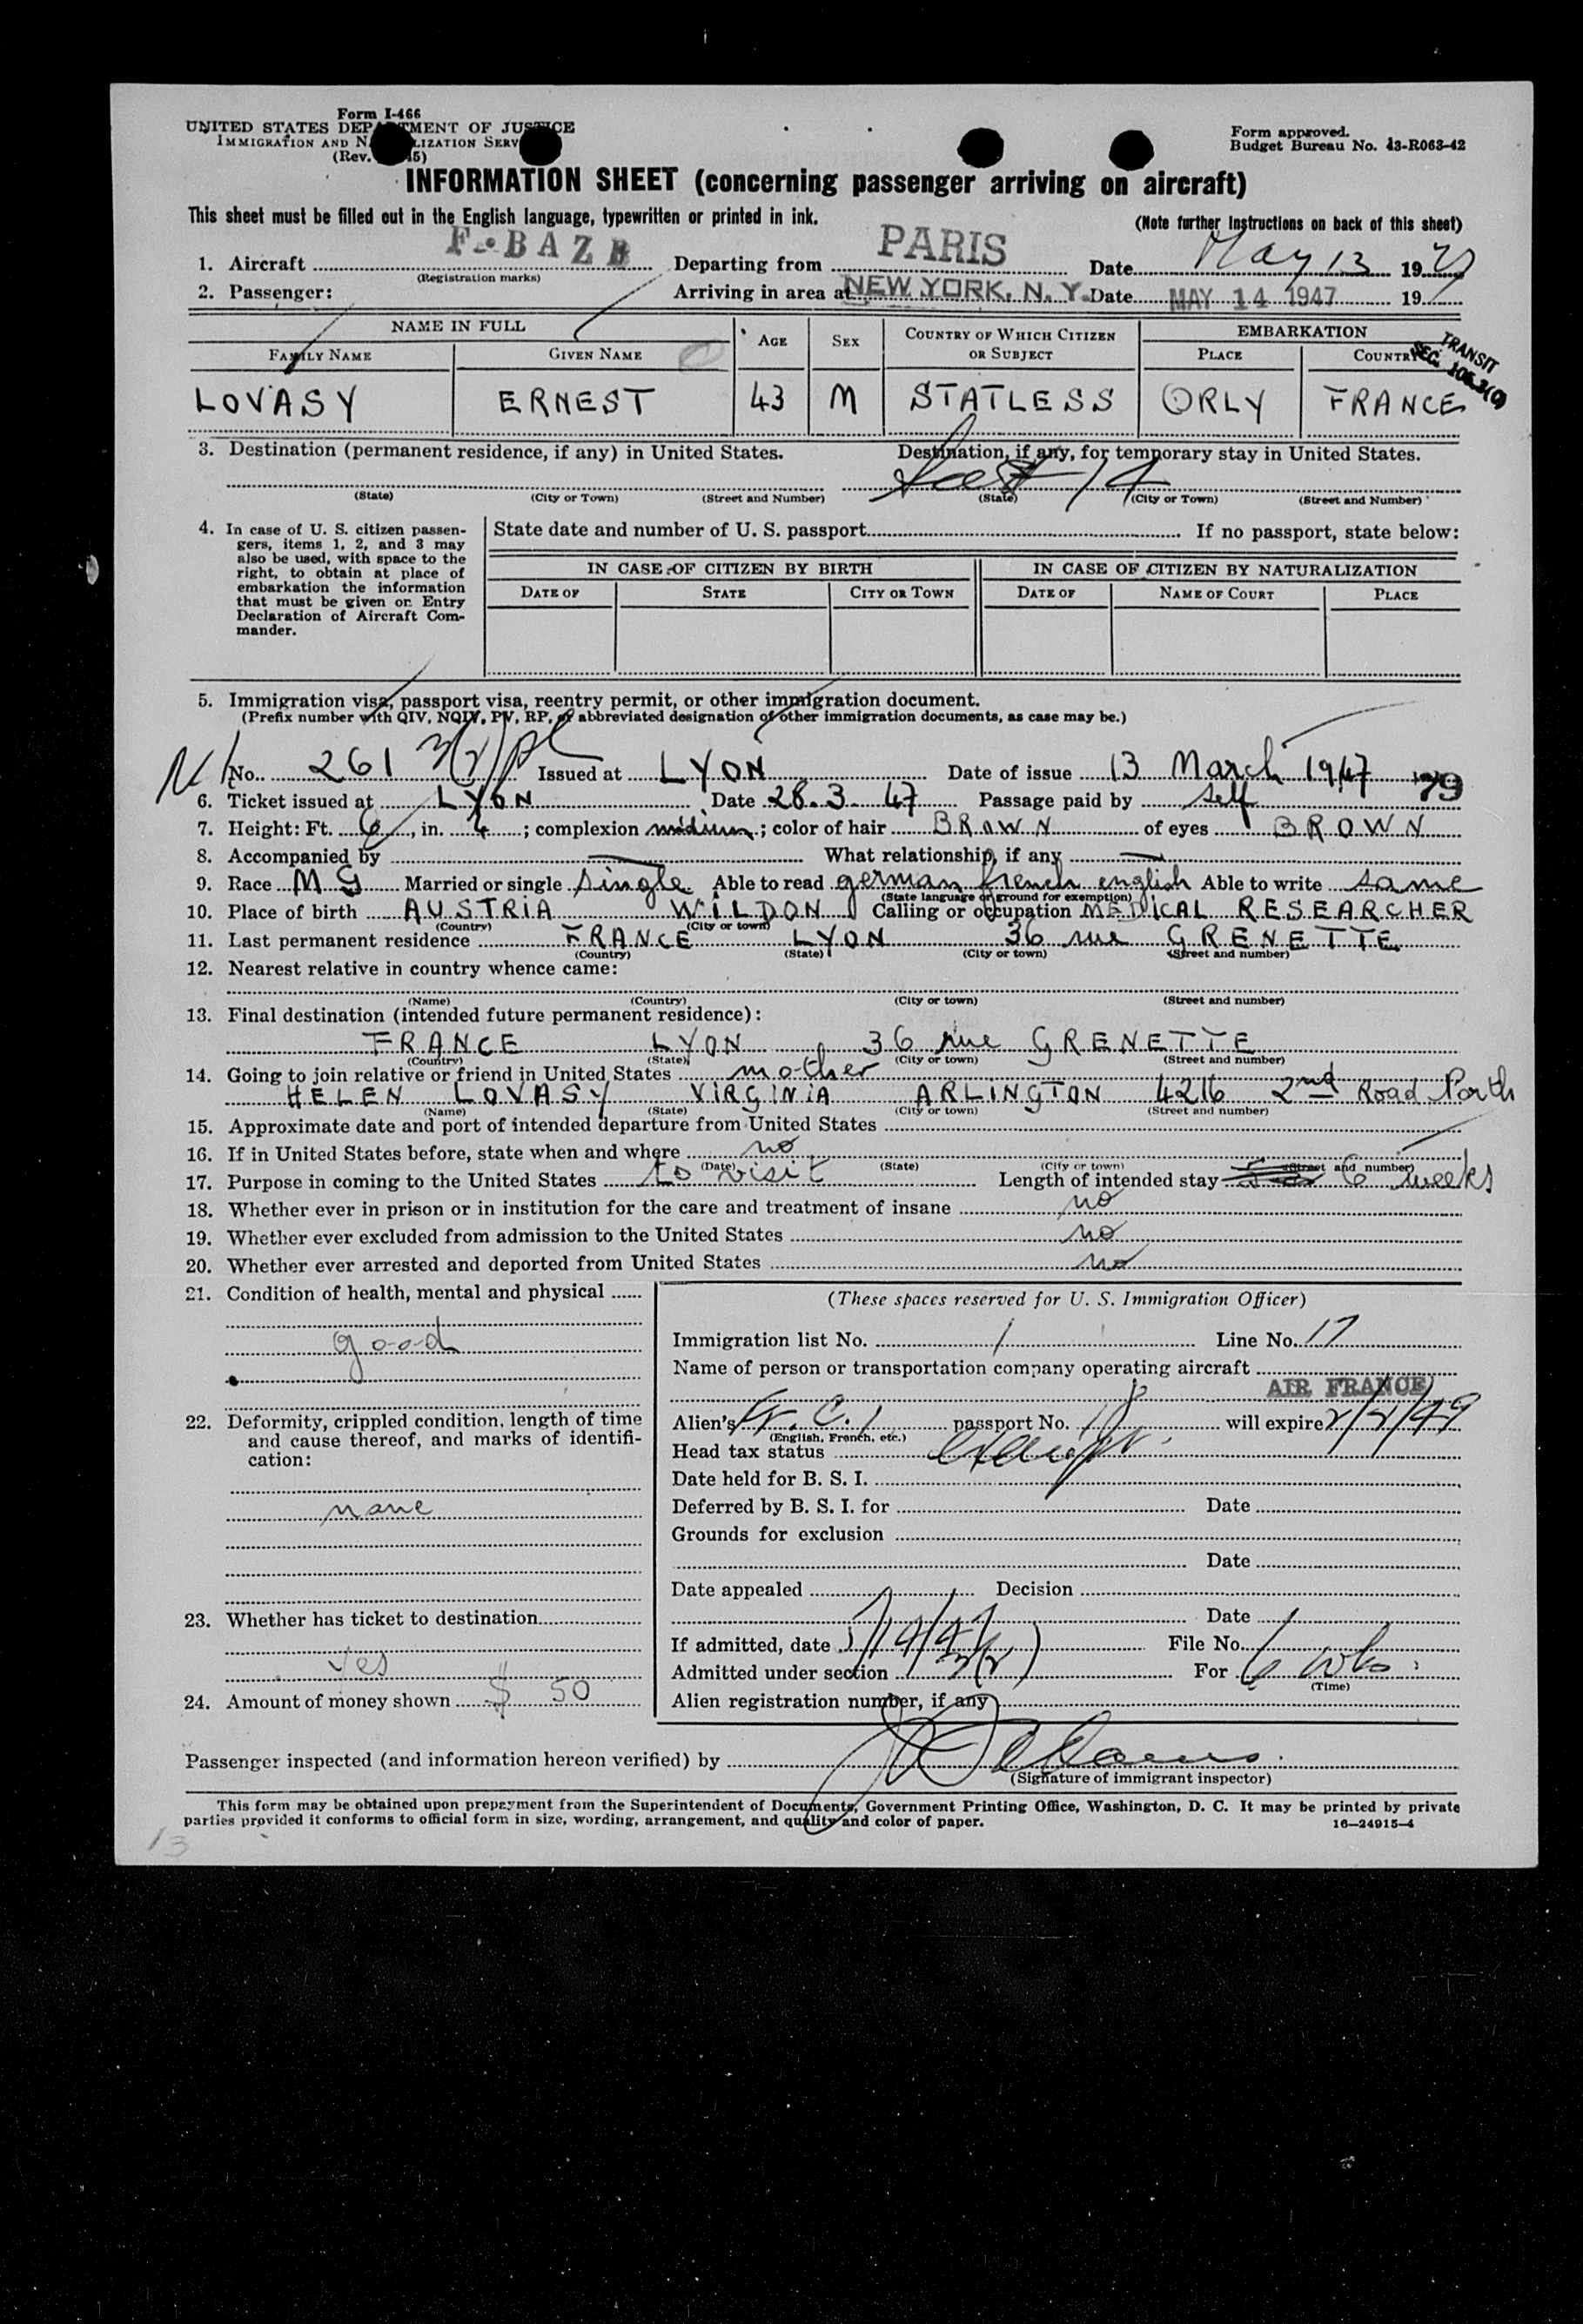 Form I-466
UNITED STATES DEPARTMENT OF JUSTICE
IMMIGRATION AND NATURALIZATION SERV
(Rev. 45)
Form approved.
Budget Bureau No. 43-R063-42
INFORMATION SHEET (concerning passenger arriving on aircraft)
This sheet must be filled out in the English language, typewritten or printed in ink.
(Note further instructions on back of this sheet)
1. Aircraft F-BAZB Departing from PARIS Date May 13 1947
(Registration marks)
2. Passenger: Arriving in area at NEW YORK, N. Y. Date MAY 14 1947 19
NAME IN FULL AGE SEX COUNTRY OF WHICH CITIZEN OR SUBJECT EMBARKATION
FAMILY NAME GIVEN NAME PLACE COUNTRY
TRANSIT
SEC.
LOVASY ERNEST 43 M STATLESS ORLY FRANCE
3. Destination (permanent residence, if any) in United States. Destination, if any, for temporary stay in United States.
(State) (City or Town) (Street and Number) (State) (City or Town) (Street and Number)
4. In case of U. S. citizen passen-
gers, items 1, 2, and 3 may
also be used, with space to the
right, to obtain at place of
embarkation the information
that must be given on Entry
Declaration of Aircraft Com-
mander.
State date and number of U. S. passport If no passport, state below:
IN CASE OF CITIZEN BY BIRTH IN CASE OF CITIZEN BY NATURALIZATION
DATE OF STATE CITY OR TOWN DATE OF NAME OF COURT PLACE
5. Immigration visa, passport visa, reentry permit, or other immigration document.
(Prefix number with QIV, NQIV, PV, RP, or abbreviated designation of other immigration documents, as case may be.)
No. 261 3(2) Issued at LYON Date of issue 13 March 1947 79
6. Ticket issued at LYON Date 28.3 47 Passage paid by self
7. Height: Ft. 6, in. 4; complexion midium; color of hair BROWN of eyes BROWN
8. Accompanied by — What relationship, if any —
9. Race M G Married or single single Able to read german french english Able to write same
(State language or ground for exemption)
10. Place of birth AUSTRIA WILDON Calling or occupation MEDICAL RESEARCHER
(Country) (City or town)
11. Last permanent residence FRANCE LYON 36 rue GRENETTE
(Country) (State) (City or town) (Street and number)
12. Nearest relative in country whence came:
(Name) (Country) (City or town) (Street and number)
13. Final destination (intended future permanent residence):
FRANCE LYON 36 rue GRENETTE
(Country) (State) (City or town) (Street and number)
14. Going to join relative or friend in United States mother
HELEN LOVASY VIRGINIA ARLINGTON 4216 2nd Road
(Name) (State) (City or town) (Street and number)
15. Approximate date and port of intended departure from United States
16. If in United States before, state when and where no
(Date) (State) (City or town) (Street and number)
17. Purpose in coming to the United States to visit Length of intended stay 6 weeks
18. Whether ever in prison or in institution for the care and treatment of insane no
19. Whether ever excluded from admission to the United States no
20. Whether ever arrested and deported from United States no
21. Condition of health, mental and physical
good
22. Deformity, crippled condition, length of time
and cause thereof, and marks of identifi-
cation:
none
23. Whether has ticket to destination
Yes
24. Amount of money shown $ 50
(These spaces reserved for U. S. Immigration Officer)
Immigration list No. 1 Line No. 17
Name of person or transportation company operating aircraft
AIR FRANCE
Alien's passport No. will expire
(English, French, etc.)
Head tax status
Date held for B. S. I.
Deferred by B. S. I. for Date
Grounds for exclusion
Date
Date appealed Decision
Date
If admitted, date 5/14/47 File No.
Admitted under section 3(2) For 6 wks
(Time)
Alien registration number, if any
Passenger inspected (and information hereon verified) by
(Signature of immigrant inspector)
This form may be obtained upon prepayment from the Superintendent of Documents, Government Printing Office, Washington, D. C. It may be printed by private
parties provided it conforms to official form in size, wording, arrangement, and quality and color of paper.
16—24915-4
13